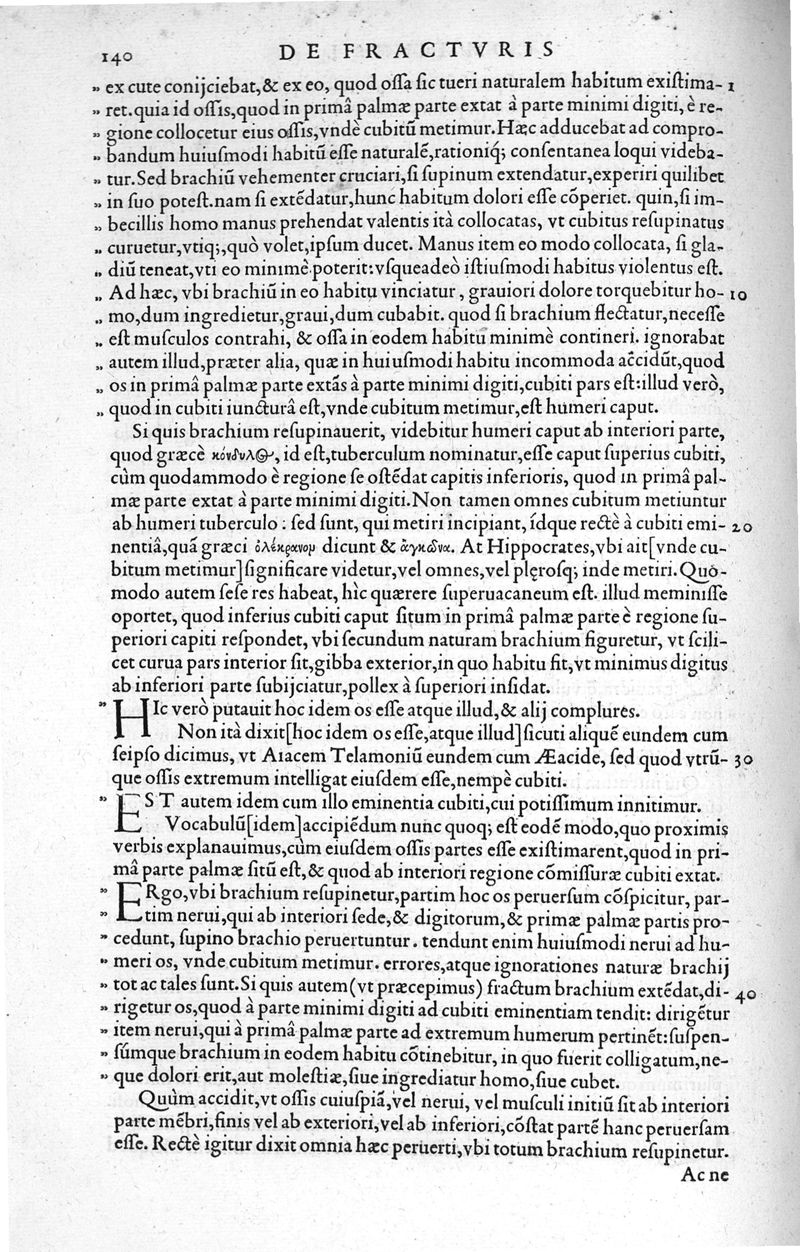 140 DE FRACTVRIS
„ ex cute conijciebat,& ex eo, quod oſſa ſic tueri naturalem habitum exiſtima- 1
„ ret. quia id oſſis,quod in primâ palmæ parte extat à parte minimi digiti, è re-
„ gione collocetur eius oſſis,vndè cubitū metimur. Hæc adducebat ad compro-
„ bandum huiuſmodi habitū eſſe naturalē,rationiq́; conſentanea loqui videba-
„ tur. Sed brachiū vehementer cruciari,ſi ſupinum extendatur,experiri quilibet
„ in ſuo poteſt. nam ſi extēdatur,hunc habitum dolori eſſe cōperiet. quin,ſi im-
„ becillis homo manus prehendat valentis ità collocatas, vt cubitus reſupinatus
„ curuetur,vtiq;,quò volet,ipſum ducet. Manus item eo modo collocata, ſi gla-
„ diū teneat,vti eo minimè poterit:vſqueadeò iſtiuſmodi habitus violentus eſt.
„ Ad hæc, vbi brachiū in eo habitu vinciatur , grauiori dolore torquebitur ho- 10
„ mo,dum ingredietur,graui,dum cubabit. quod ſi brachium flectatur,neceſſe
„ eſt muſculos contrahi, & oſſa in eodem habitu minimè contineri. ignorabat
„ autem illud,præter alia, quæ in huiuſmodi habitu incommoda accidūt,quod
„ os in primâ palmæ parte extās à parte minimi digiti,cubiti pars eſt:illud verò,
„ quod in cubiti iuncturâ eſt,vnde cubitum metimur,eſt humeri caput.
Si quis brachium reſupinauerit, videbitur humeri caput ab interiori parte,
quod græcè κόνδυλος, id eſt,tuberculum nominatur,eſſe caput ſuperius cubiti,
cùm quodammodo è regione ſe oſtēdat capitis inferioris, quod in primâ pal-
mæ parte extat à parte minimi digiti. Non tamen omnes cubitum metiuntur
ab humeri tuberculo : ſed ſunt, qui metiri incipiant, ídque rectè à cubiti emi- 20
nentiâ,quā græci ὀλέκρανον dicunt & ἀγκῶνα. At Hippocrates,vbi ait[vnde cu-
bitum metimur]ſignificare videtur,vel omnes,vel plęroſq; inde metiri. Quo-
modo autem ſeſe res habeat, hìc quærere ſuperuacaneum eſt. illud meminiſſe
oportet, quod inferius cubiti caput ſitum in primâ palmæ parte è regione ſu-
periori capiti reſpondet, vbi ſecundum naturam brachium figuretur, vt ſcili-
cet curua pars interior ſit,gibba exterior,in quo habitu fit,vt minimus digitus
ab inferiori parte ſubijciatur,pollex à ſuperiori inſidat.
„ HIc verò putauit hoc idem os eſſe atque illud,& alij complures.
Non ità dixit[hoc idem os eſſe,atque illud]ſicuti aliquē eundem cum
ſeipſo dicimus, vt Aiacem Telamoniū eundem cum Æacide, ſed quod vtrū- 30
que oſſis extremum intelligat eiuſdem eſſe,nempè cubiti.
„ EST autem idem cum illo eminentia cubiti,cui potiſſimum innitimur.
Vocabulū[idem]accipiēdum nunc quoq; eſt eodē modo,quo proximis
verbis explanauimus,cùm eiuſdem oſſis partes eſſe exiſtimarent,quod in pri-
mâ parte palmæ ſitū eſt,& quod ab interiori regione cōmiſſuræ cubiti extat.
„ ERgo,vbi brachium reſupinetur,partim hoc os peruerſum cōſpicitur, par-
„ tim nerui,qui ab interiori ſede,& digitorum,& primæ palmæ partis pro-
„ cedunt, ſupino brachio peruertuntur. tendunt enim huiuſmodi nerui ad hu-
„ meri os, vnde cubitum metimur. errores,atque ignorationes naturæ brachij
„ tot ac tales ſunt. Si quis autem(vt præcepimus) fractum brachium extēdat,di- 40
„ rigetur os,quod à parte minimi digiti ad cubiti eminentiam tendit: dirigētur
„ item nerui,qui à primâ palmæ parte ad extremum humerum pertinēt:ſuſpen-
„ ſúmque brachium in eodem habitu cōtinebitur, in quo fuerit colligatum,ne-
„ que dolori erit,aut moleſtiæ,ſiue ingrediatur homo,ſiue cubet.
Quùm accidit,vt oſſis cuiuſpiā,vel nerui, vel muſculi initiū ſit ab interiori
parte mēbri,finis vel ab exteriori,vel ab inferiori,cōſtat partē hanc peruerſam
eſſe. Rectè igitur dixit omnia hæc peruerti,vbi totum brachium reſupinetur.
Ac ne